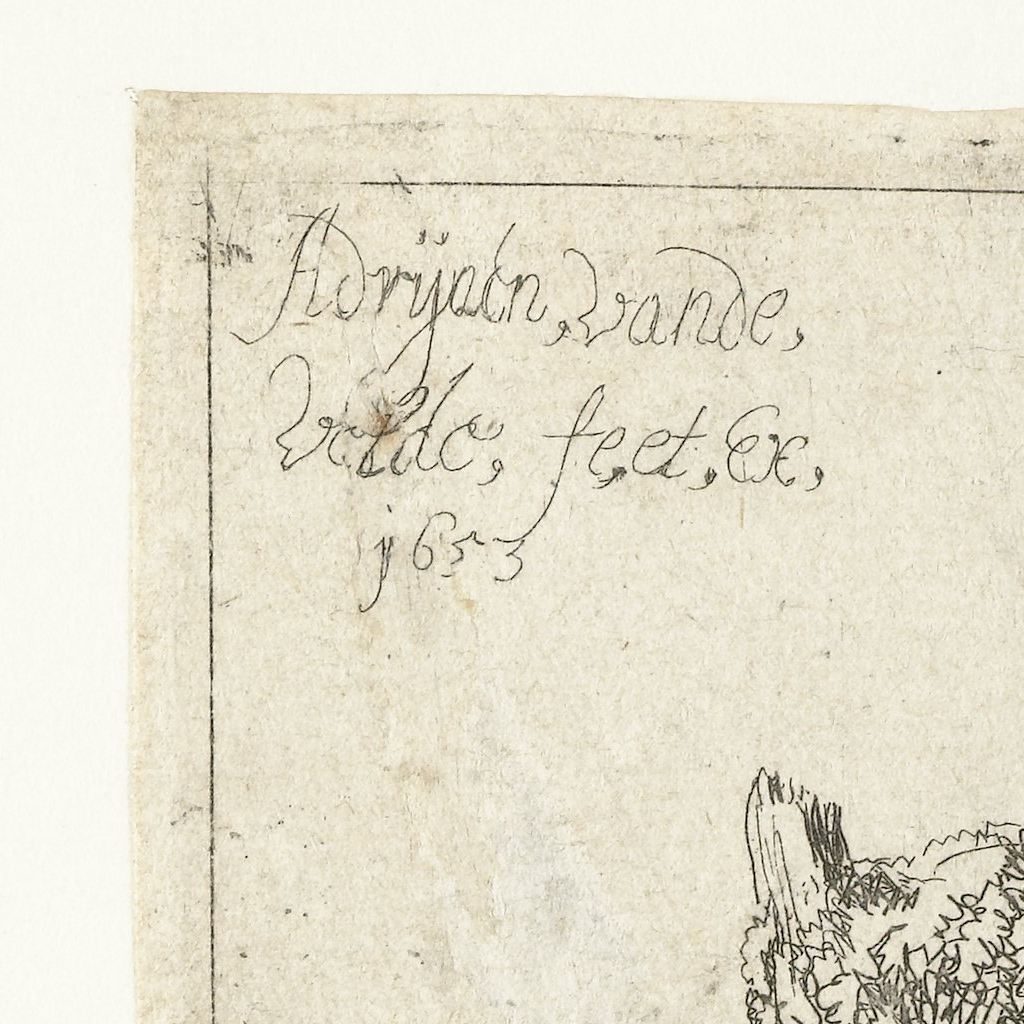 Adrijaen, vande,
Velde, fe, et, Ex,
j653